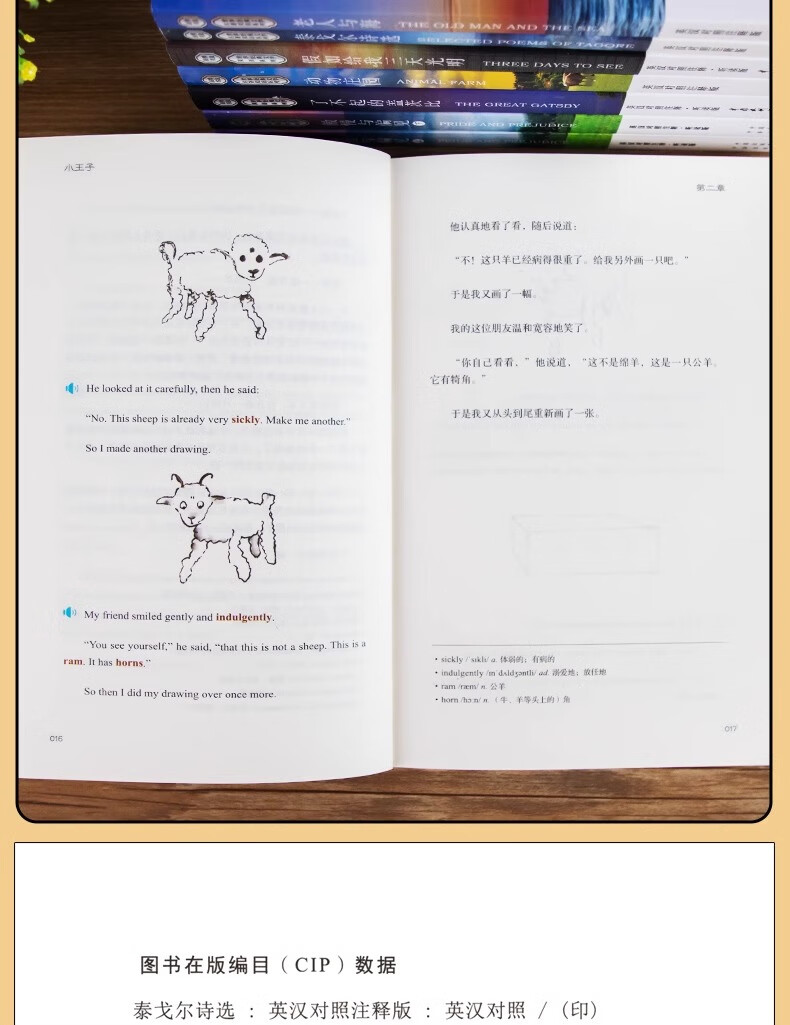 老人与海 THE OLD MAN AND THE SEA
泰戈尔诗选 SELECTED POEMS OF TAGORE
假如给我三天光明 THREE DAYS TO SEE
动物庄园 ANIMAL FARM
了不起的盖茨比 THE GREAT GATSBY
傲慢与偏见 PRIDE AND PREJUDICE
小王子
He looked at it carefully, then he said:
“No. This sheep is already very sickly. Make me another.”
So I made another drawing.
My friend smiled gently and indulgently.
“You see yourself,” he said, “that this is not a sheep. This is a
ram. It has horns.”
So then I did my drawing over once more.
016
第二章
他认真地看了看，随后说道：
“不！这只羊已经病得很重了。给我另外画一只吧。”
于是我又画了一幅。
我的这位朋友温和宽容地笑了。
“你自己看看，”他说道，“这不是绵羊，这是一只公羊。
它有犄角。”
于是我又从头到尾重新画了一张。
• sickly /ˈsɪkli/ a. 体弱的；有病的
• indulgently /ɪnˈdʌldʒəntli/ ad. 溺爱地；放任地
• ram /ræm/ n. 公羊
• horn /hɔːn/ n. （牛、羊等头上的）角
017
图书在版编目（CIP）数据
泰戈尔诗选 ： 英汉对照注释版 ： 英汉对照 / （印）